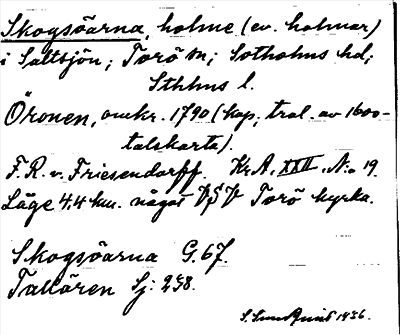 Skogsöarna, holme (ev. holmar)
i Saltsjön; Torö sn; Sotholms hd;
Sthlms l.
Öronen, omkr. 1790 (kop. trol. av 1600-
talskarta).
F. R. v. Friesendorff. Kr.A. XXII. N:o 19.
Läge 4,4 km. något VSV Torö kyrka.
Skogsöarna G. 67.
Tallören Sj: 238.
S. Sundquist 1936.